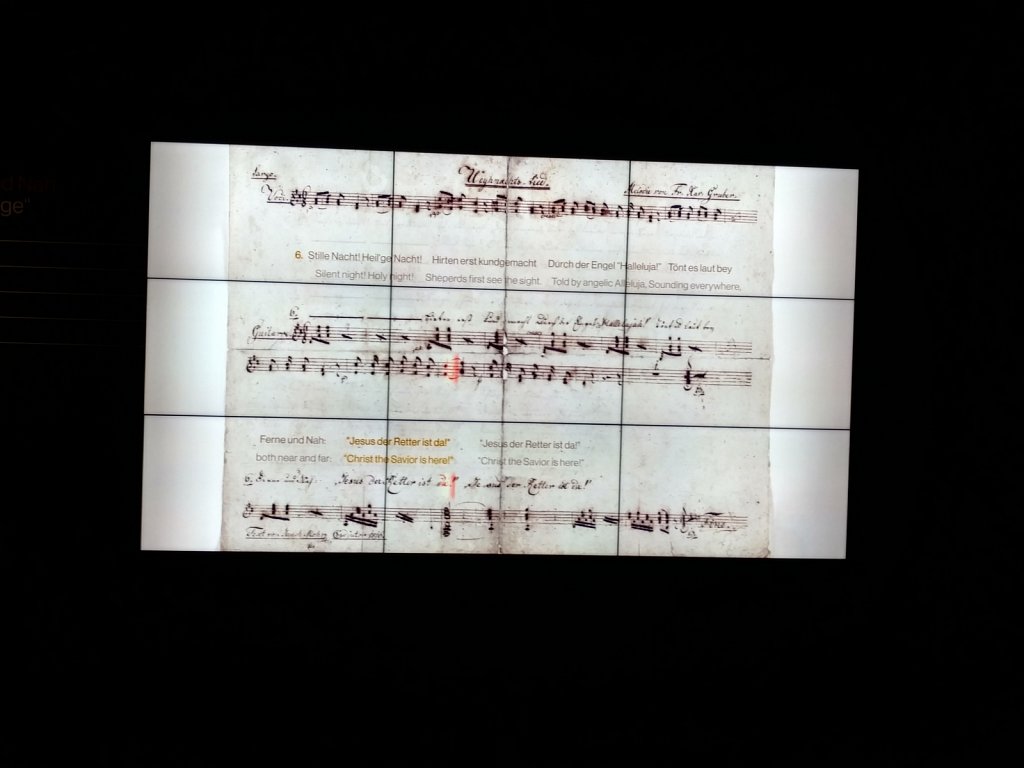 d Nah
ge"
Weyhnachts-Lied.
Melodie von Fr. Xav. Gruber.
6. Stille Nacht! Heil'ge Nacht! Hirten erst kundgemacht Durch der Engel "Halleluja!" Tönt es laut bey
Silent night! Holy night! Sheperds first see the sight. Told by angelic Alleluja, Sounding everywhere,
6.
Guitarre
Durch der Engel Hallelujah! Tönt es laut bey
Ferne und Nah: "Jesus der Retter ist da!" "Jesus der Retter ist da!"
both near and far: "Christ the Savior is here!" "Christ the Savior is here!"
6. Ferne und Nah: Jesus der Retter ist da!" Jesus der Retter ist da!"
Fine.
Text von Joseph Mohr